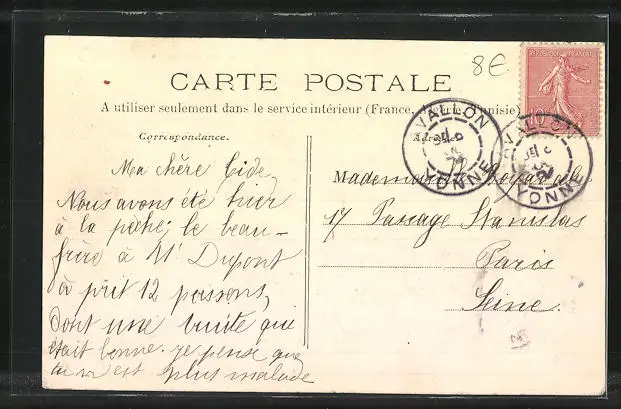 8€
CARTE POSTALE
A utiliser seulement dans le service intérieur (France, Algérie, Tunisie)
10
AVALLON
YONNE
AVALLON
YONNE
Correspondance.
Adresse
Ma chère
Nous avons été hier
à la pêche, le beau-
frère à Mr Dupont
a prit 12 poissons,
dont une truite qui
était bonne. je pense que
tu n'est plus malade
Mademoiselle
17 Passage Stanislas
Paris
Seine.